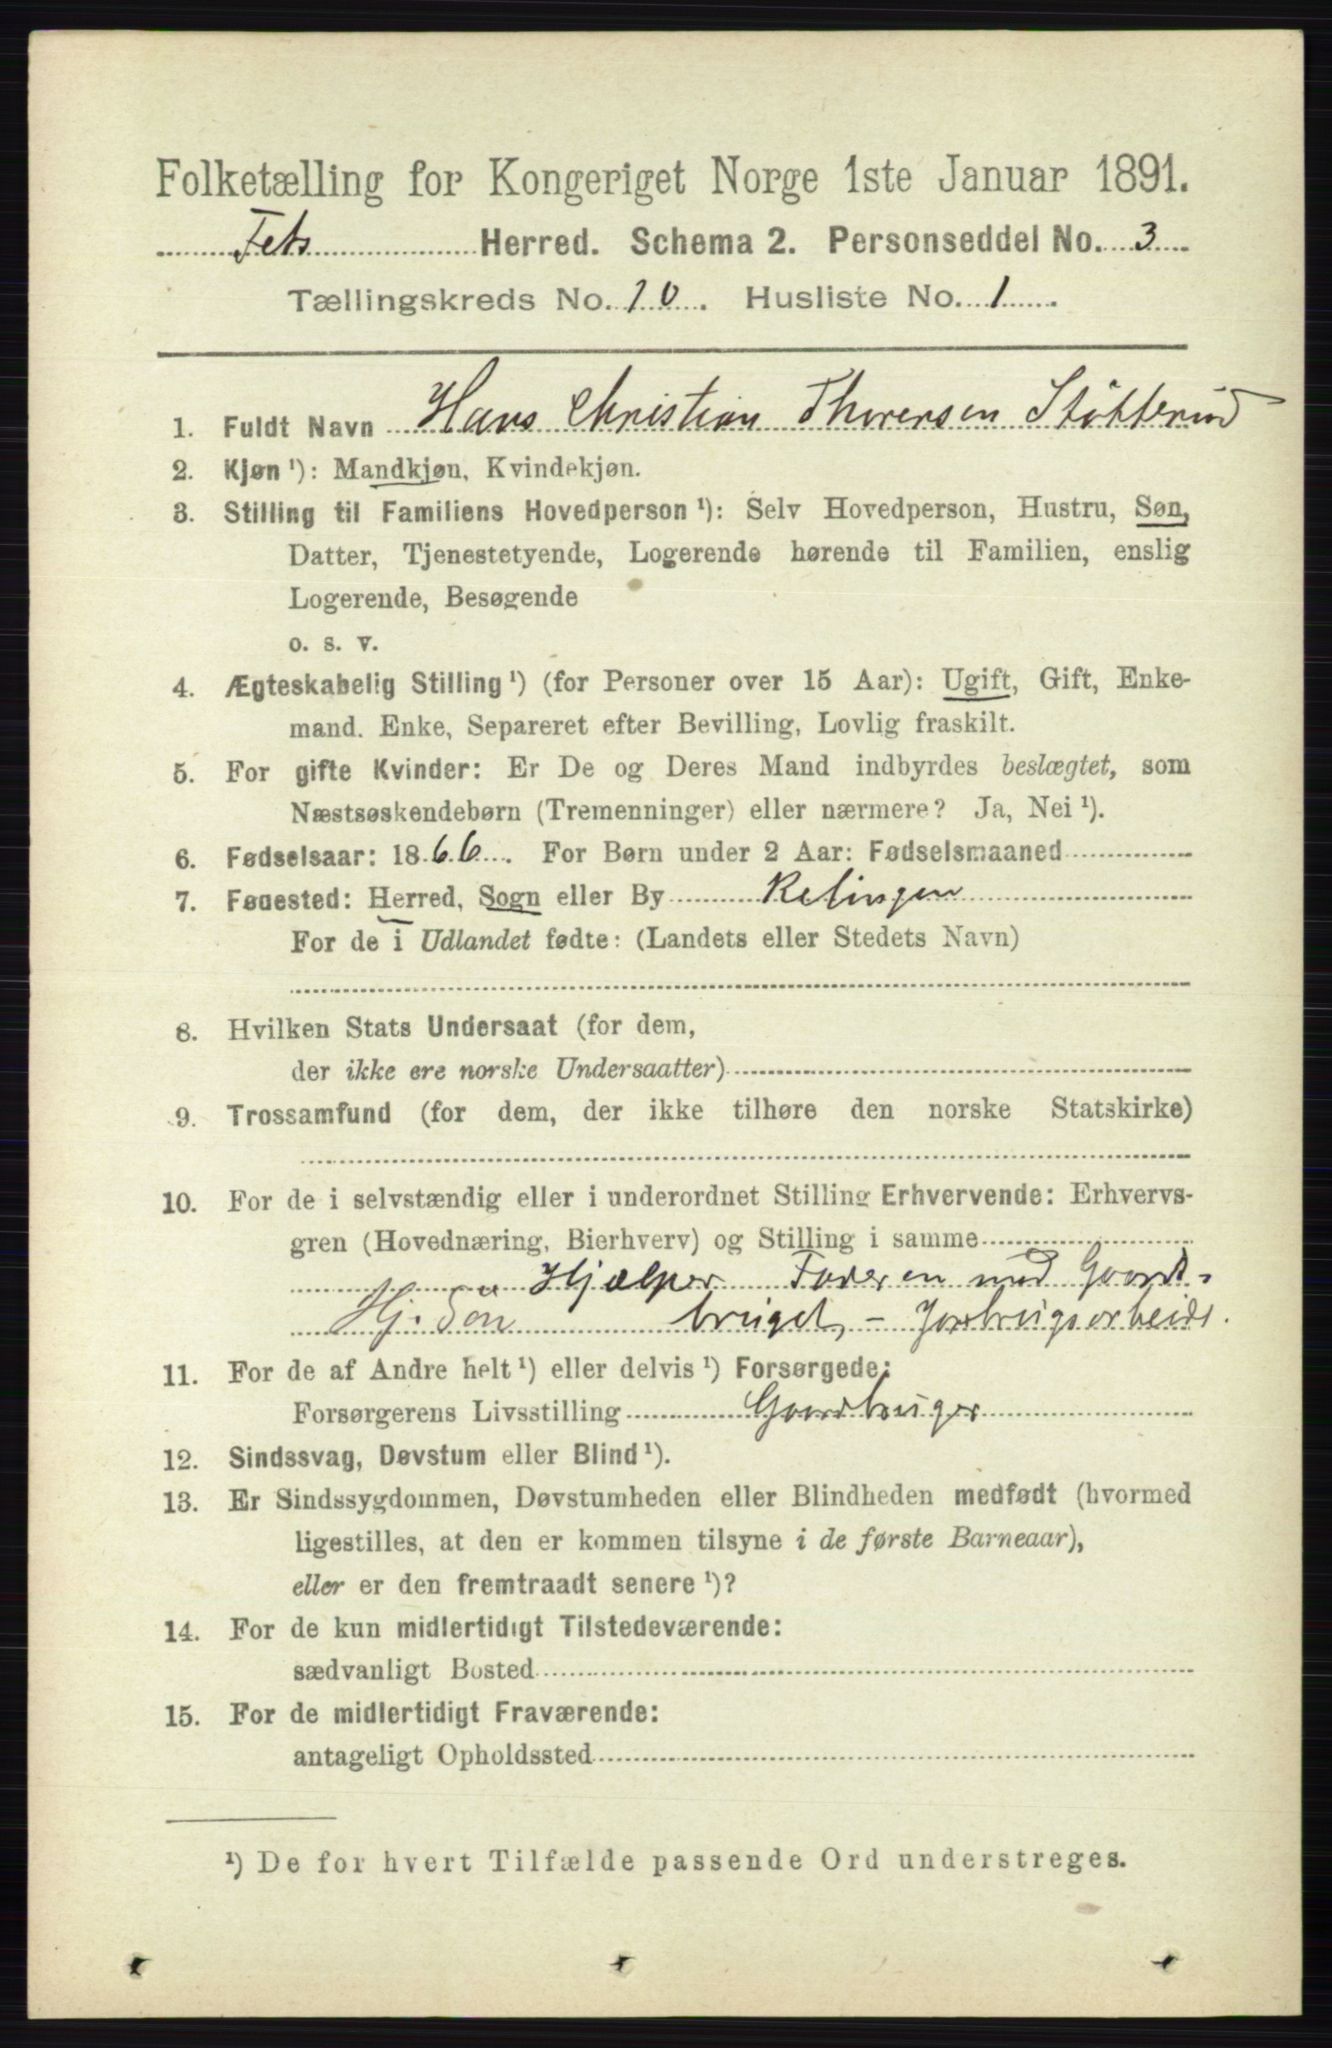 Folketælling for Kongeriget Norge 1ste Januar 1891.
Fets Herred. Schema 2. Personseddel No. 3
Tællingskreds No. 10. Husliste No. 1
1. Fuldt Navn Hans Christian Thoresen Støtterud
2. Kjøn ¹): Mandkjøn, Kvindekjøn.
3. Stilling til Familiens Hovedperson ¹): Selv Hovedperson, Hustru, Søn,
Datter, Tjenestetyende, Logerende hørende til Familien, enslig
Logerende, Besøgende
o. s. v.
4. Ægteskabelig Stilling ¹) (for Personer over 15 Aar): Ugift, Gift, Enke-
mand. Enke, Separeret efter Bevilling, Lovlig fraskilt.
5. For gifte Kvinder: Er De og Deres Mand indbyrdes beslægtet, som
Næstsøskendebørn (Tremenninger) eller nærmere? Ja, Nei ¹).
6. Fødselsaar: 1866. For Børn under 2 Aar: Fødselsmaaned
7. Fødested: Herred, Sogn eller By Relingen
For de i Udlandet fødte: (Landets eller Stedets Navn)
8. Hvilken Stats Undersaat (for dem,
der ikke ere norske Undersaatter)
9. Trossamfund (for dem, der ikke tilhøre den norske Statskirke)
10. For de i selvstændig eller i underordnet Stilling Erhvervende: Erhvervs-
gren (Hovednæring, Bierhverv) og Stilling i samme
Hjælper Faderen med Gaards-
Hj. Søn bruget, - Jordbrugsarbeide.
11. For de af Andre helt ¹) eller delvis ¹) Forsørgede:
Forsørgerens Livsstilling Gaardbruger
12. Sindssvag, Døvstum eller Blind ¹).
13. Er Sindssygdommen, Døvstumheden eller Blindheden medfødt (hvormed
ligestilles, at den er kommen tilsyne i de første Barneaar),
eller er den fremtraadt senere ¹)?
14. For de kun midlertidigt Tilstedeværende:
sædvanligt Bosted
15. For de midlertidigt Fraværende:
antageligt Opholdssted
¹) De for hvert Tilfælde passende Ord understreges.